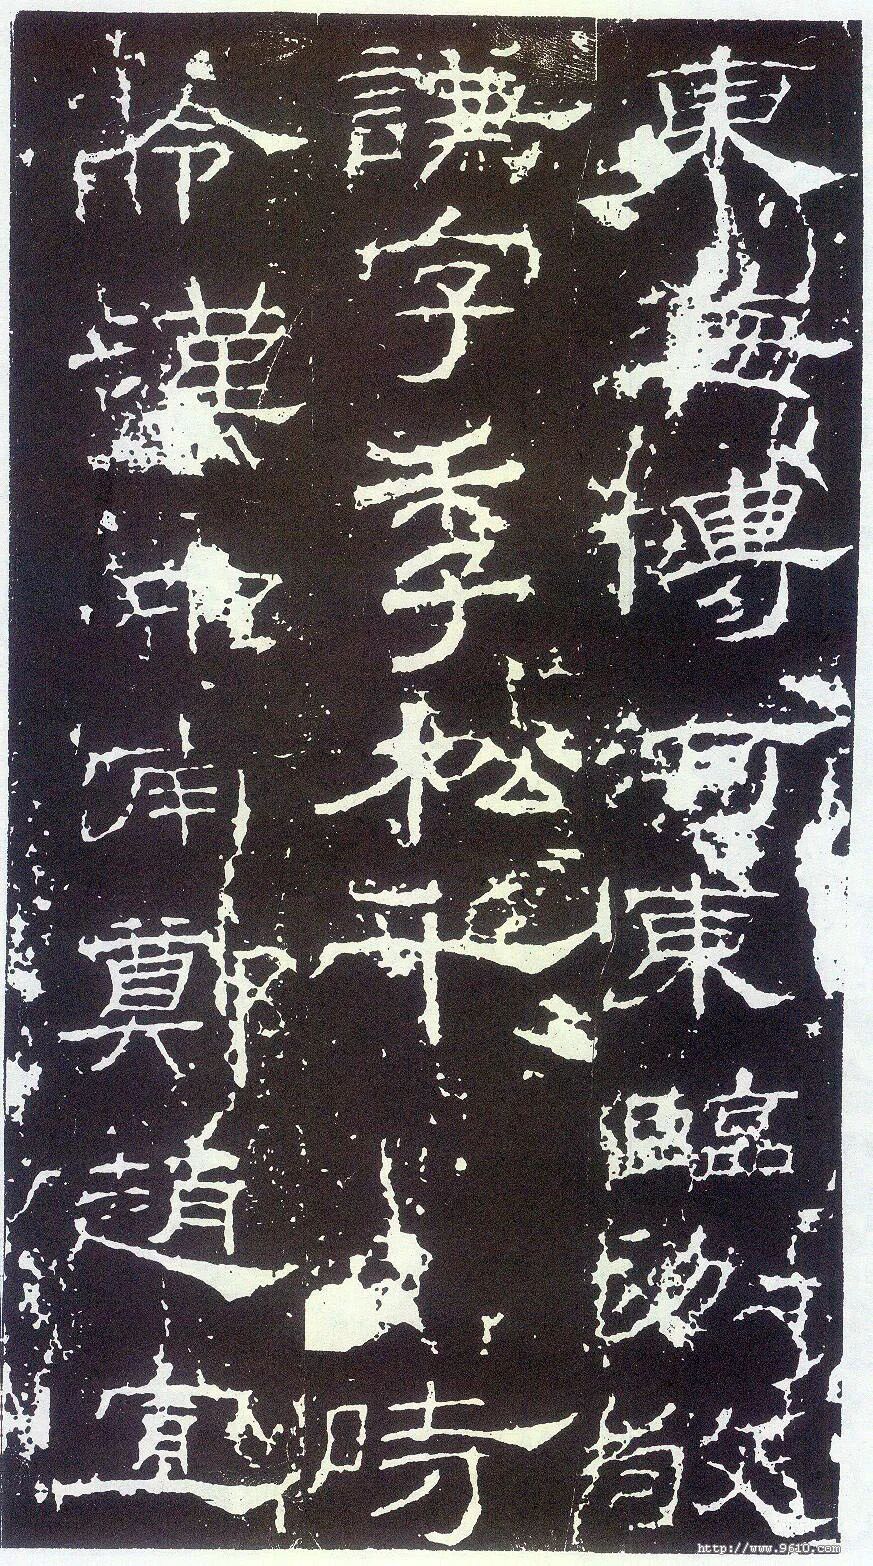 東海傅河東臨汾敬
謙字季松時
令漢中南鄭趙宣
http://www.9610.com